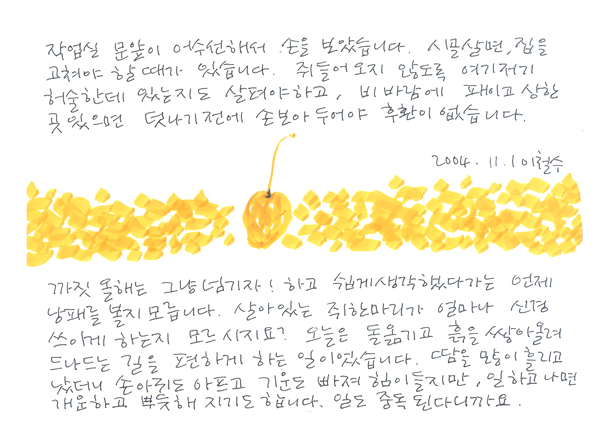 작업실 문앞이 어수선해서 손을 보았습니다. 시골살면, 집을
고쳐야 할때가 있습니다. 쥐들어오지 않도록 여기저기
허술한데 있는지도 살펴야하고, 비바람에 패이고 상한
곳 있으면 덧나기전에 손보아두어야 후환이 없습니다.
2004. 11. 1 이철수
까짓 올해는 그냥넘기자! 하고 쉽게생각했다가는 언제
낭패를 볼지 모릅니다. 살아있는 쥐한마리가 얼마나 신경
쓰이게 하는지 모르시지요? 오늘은 돌옮기고 흙을 쌓아올려
드나드는 길을 편하게 하는 일이었습니다. 땀을 많이 흘리고
났더니 손아귀도 아프고 기운도 빠져 힘이들지만, 일하고나면
개운하고 뿌듯해 지기도합니다. 일도 중독 된다니까요.